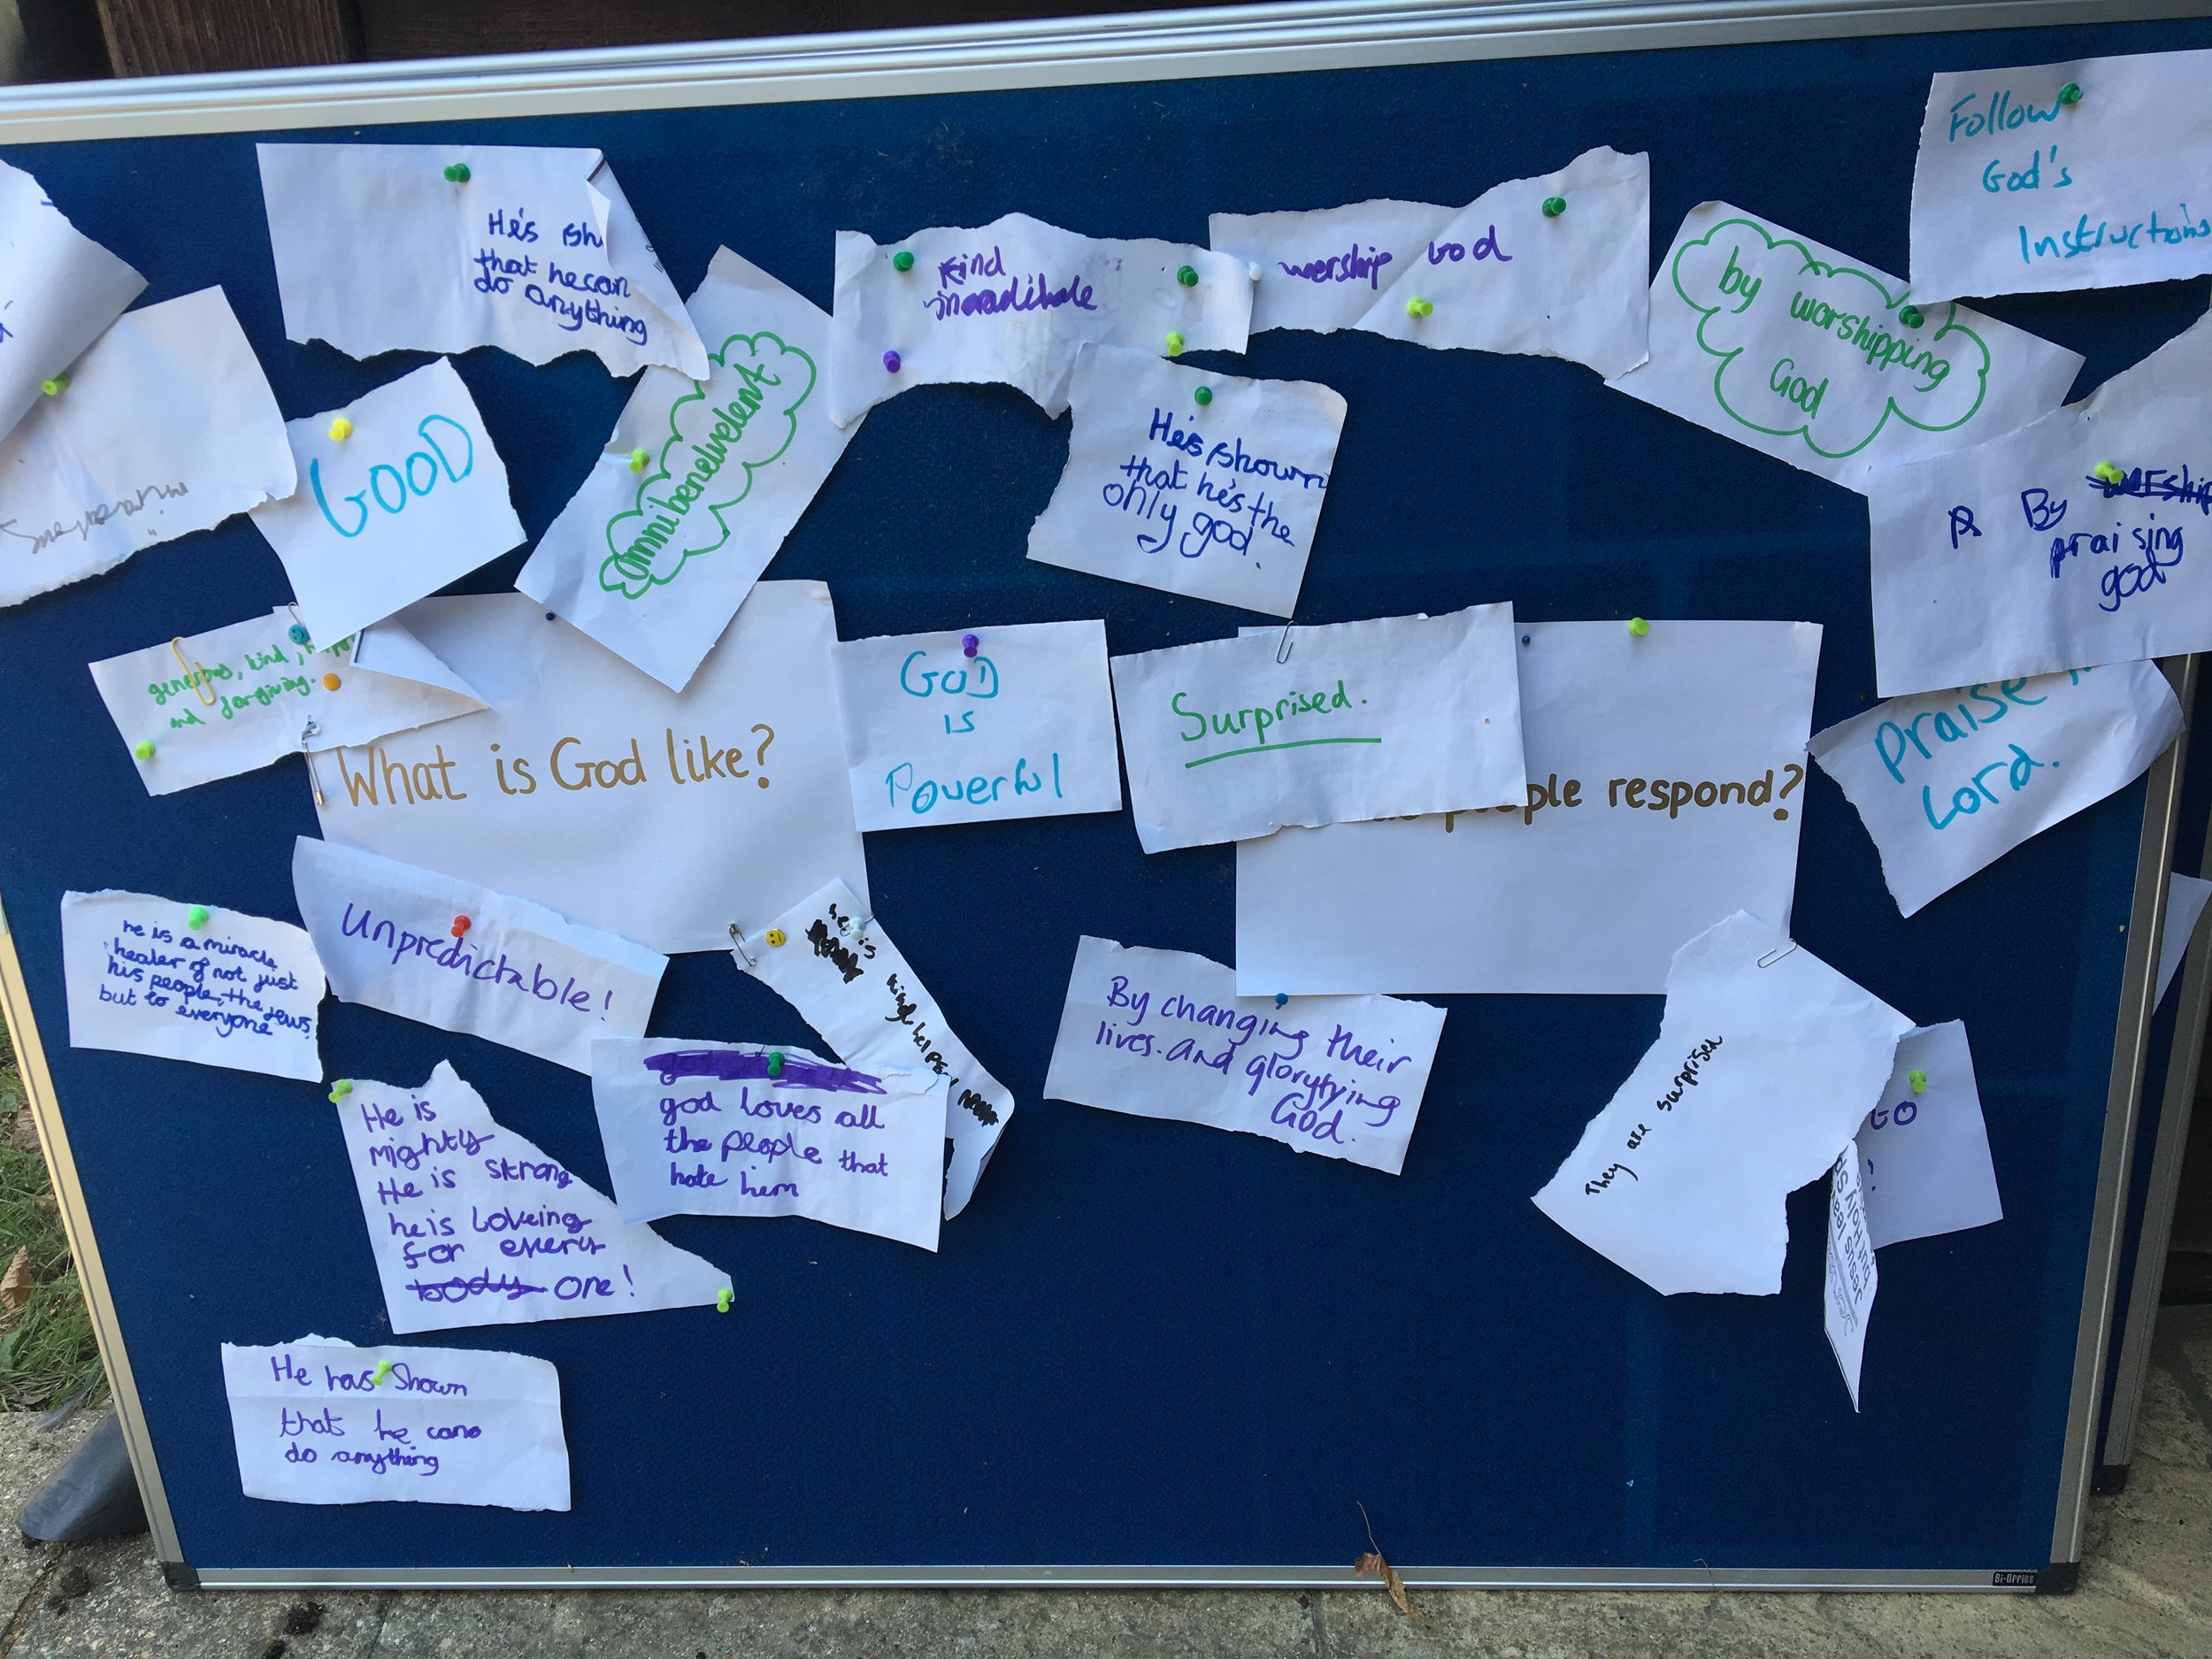 He's sh
that he can
do anything
GOOD
Omnibenelvelent
Kind
worship God
by worshipping
God
Follow
God's
Instructions
He's shown
that he's the
only god.
By
praising
god
generous, kind,
and forgiving.
What is God like?
GOD
IS
Powerful
Surprised.
ople respond?
Praise
Lord.
he is a miracle
healer of not just
his people, the Jews,
but to everyone
Unpredictable!
he is
kind helper
He is
mighty
He is strong
he is Loveing
for every
body one!
god loves all
the people that
hate him
By changing their
lives. and gloryfying
God.
They are surprised
GO
!
He has Shown
that he cans
do anything
Bi-Office